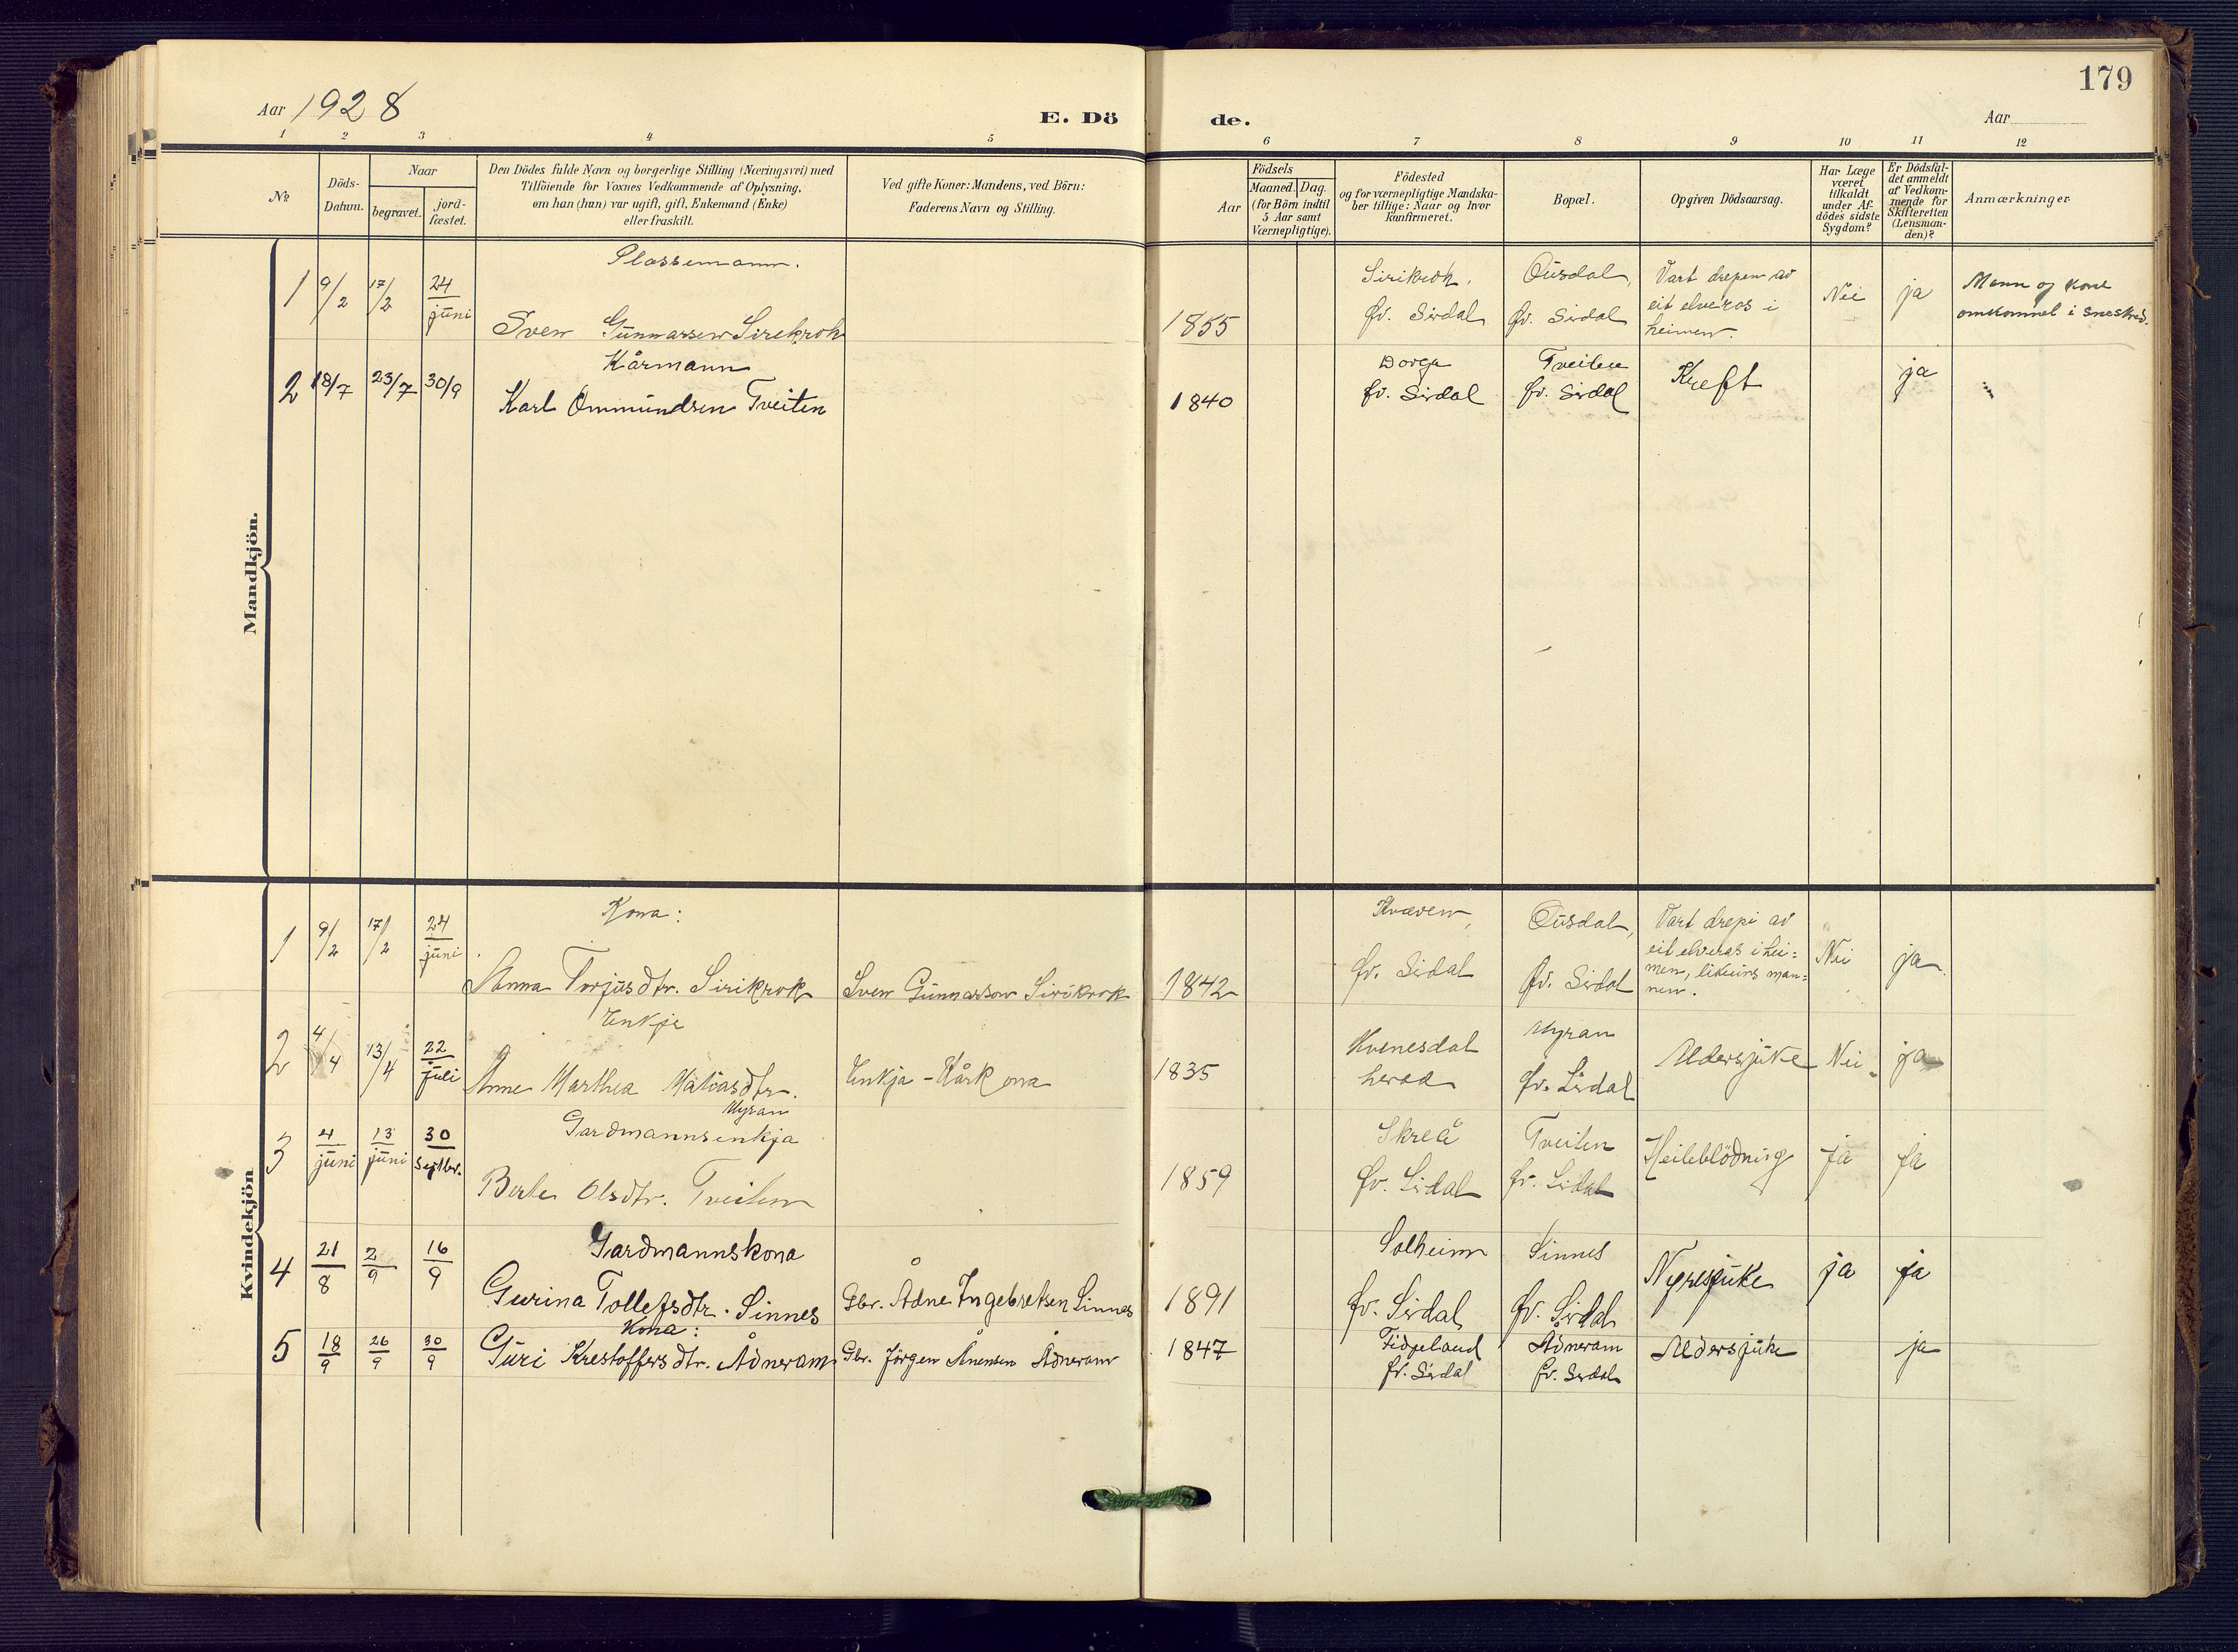 179
Aar 1928
E. Dö
de.
Aar
1 2 3 4 5 6 7 8 9 10 11 12
Nr.
Döds-
Datum.
Naar
begravet.
jord-
fæstet.
Den Dödes fulde Navn og borgerlige Stilling (Næringsvei) med
Tilföiende for Voxnes Vedkommende af Oplysning,
om han (hun) var ugift, gift, Enkemand (Enke)
eller fraskilt.
Ved gifte Koner: Mandens, ved Börn:
Faderens Navn og Stilling.
Aar
Födsels
Maaned. Dag.
(for Börn indtil
5 Aar samt
Værnepligtige).
Födested
og for værnepligtige Mandska-
ber tillige: Naar og hvor
konfirmeret.
Bopæl.
Opgiven Dödsaarsag.
Har Læge
været
tilkaldt
under Af-
dödes sidste
Sygdom?
Er Dödsfal-
det anmeldt
af Vedkom-
mende for
Skifteretten
(Lensman-
den)?
Anmærkninger
Mandkjön.
1 9/2 17/2 24 juni
Plassemann.
Sven Gunnarsen Sirekrok
1855
Sirikrok,
Øv. Sirdal
Ousdal,
Øv. Sirdal
Vart drepen av
eit elveras i
heimen.
Nei
ja
Mann og kone
omkommet i sneskred.
2 18/7 23/7 30/9
Kårmann
Karl Ommundsen Tveiten
1840
Dorge
Øv. Sirdal
Tveiten
Øv. Sirdal
Kreft
ja
Kvindekjön
1 9/2 17/2 24 juni
Kona:
Anna Torjusdtr. Sirikrok
Sven Gunnarson Sirikrok
1842
Kvæven,
Øv. Sidal
Ousdal,
Øv. Sirdal
Vart drepi av
eit elveras i hei-
men, likeins man-
nen.
Nei
ja
2 4/4 13/4 22 juli
Enkje
Anne Marthea Matiasdtr.
Myran
Enkja - Kårkona
1835
Kvinesdal
herad
Myran
Øv. Sirdal
Aldersjuke
Nei
ja
3 4 juni 13 juni 30 Septbr.
Gardmannsenkja
Berte Olsdtr. Tveiten
1859
Skreå
Øv. Sirdal
Tveiten
Øv. Sirdal
Heileblödning
ja
ja
4 21/8 2/9 16/9
Gardmannskona
Gurina Tollefsdtr. Sinnes
Gbr. Ådne Ingebretsen Sinnes
1891
Solheim
Øv. Sirdal
Sinnes
Øv. Sirdal
Nyresjuke
ja
ja
5 18/9 26/9 30/9
Kona:
Guri Krestoffersdtr. Ådneram
Gbr. Jörgen Ånensen Ådneram
1847
Fidjeland
Øv. Sirdal
Ådneram
Øv. Sirdal
Aldersjuke
ja